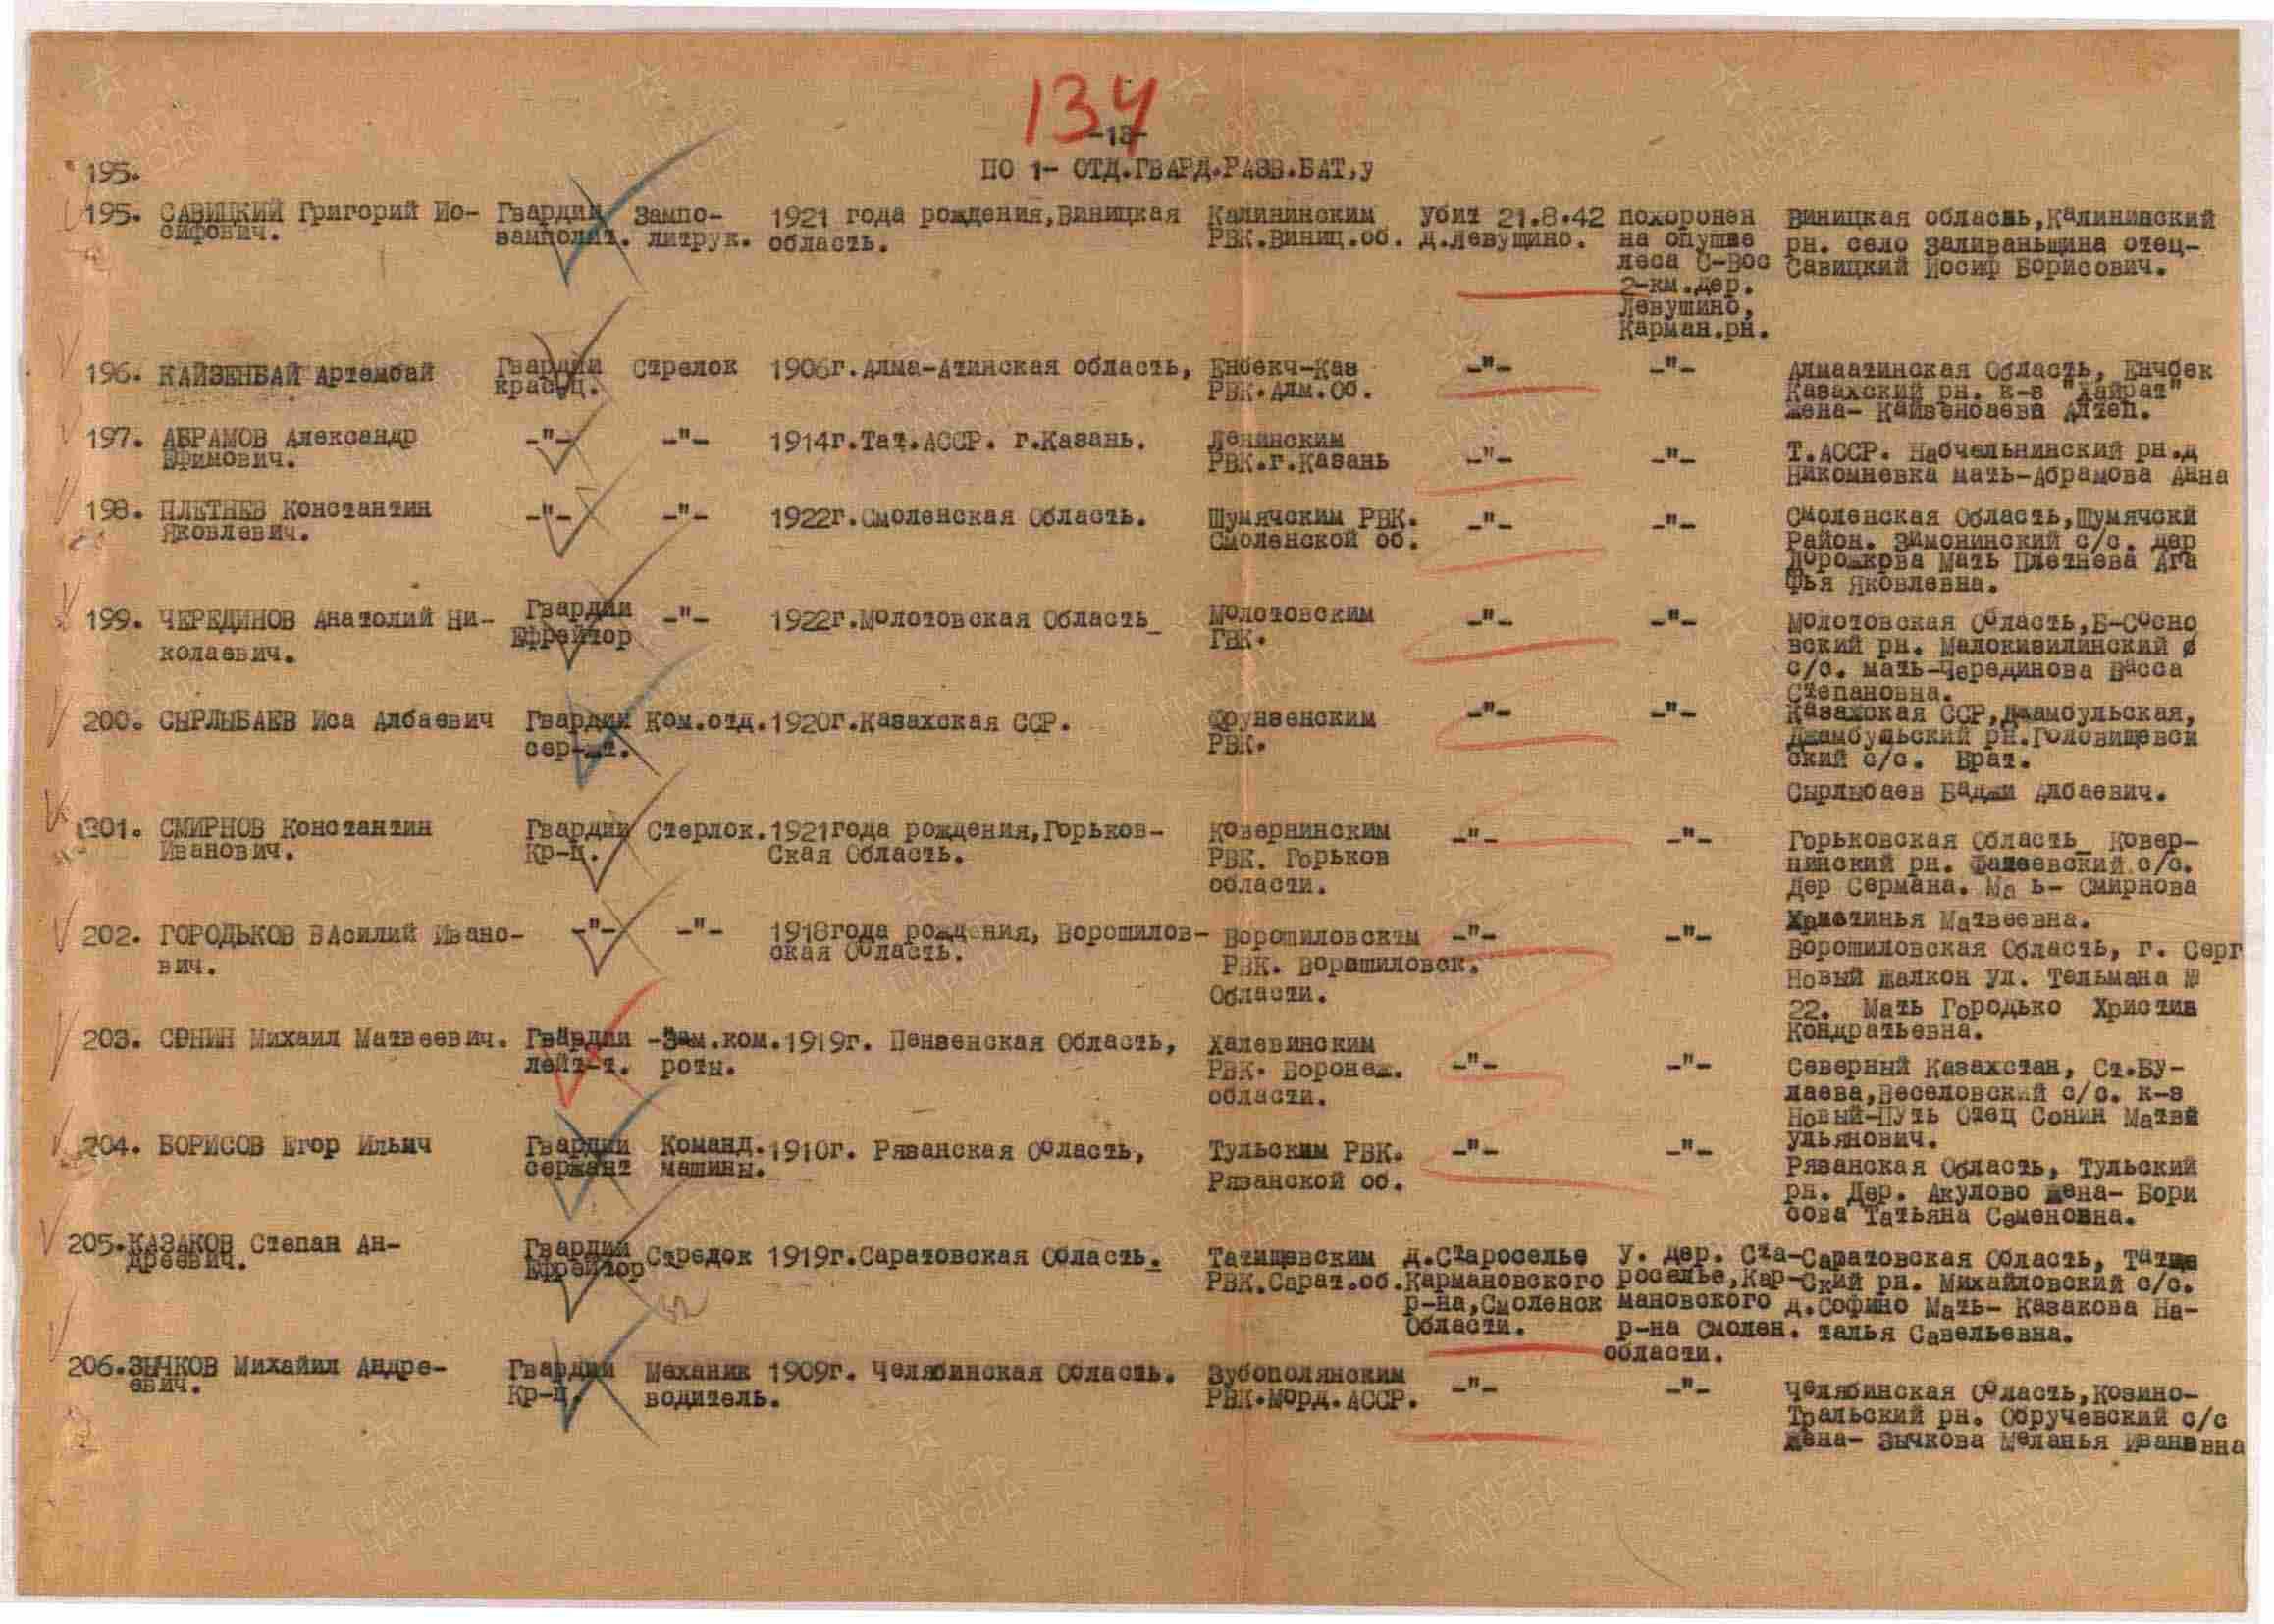 134
-13-
195.
ПО 1- ОТД.ГВАРД.РАЗВ.БАТ,у
195. САВИЦКИЙ Григорий Ио- Гвардии Зампо- 1921 года рождения,Виницкая Калининским убит 21.8.42 похоронен Виницкая область,Калининский
сифович. замполит. литрук. область. РВК.Виниц.об. д.Левушино. на опушке рн. село Заливаньщина отец-
леса С-Вос Савицкий Иосиф Борисович.
2-км.дер.
Левушино,
Карман.рн.
196. КАЙЗЕНБАЙ Артембай Гвардии Стрелок 1906г.Алма-Атинская область, Енбекч-Каз -"- -"- Алмаатинская Область, Енчбек
красц. РВК.Алм.Об. Казахский рн. к-з "Кайрат"
жена- Кайзенбаева Алтеп.
197. АБРАМОВ Александр -"- -"- 1914г.Тат.АССР. г.Казань. Ленинским -"- -"- Т.АССР. Набчельнинский рн.д
Ефимович. РВК.г.Казань Никомневка мать-Абрамова Анна
198. ПЛЕТНЕВ Константин -"- -"- 1922г.Смоленская Область. Шумячским РВК. -"- -"- Смоленская Область,Шумячски
Яковлевич. Смоленской об. Район. Зимонинский с/с. дер
Дорожкова Мать Плетнева Ага
Фья Яковлевна.
199. ЧЕРЕДИНОВ Анатолий Ни- Гвардии -"- 1922г.Молотовская Область_ Молотовским -"- -"- Молотовская Область,Б-Сосно
колаевич. Ефрейтор ГВК. вский рн. Малокизилинский
с/с. мать-Черединова Васса
Степановна.
200. СЫРЛЫБАЕВ Иса Албаевич Гвардии Ком.отд. 1920г.Казахская ССР. Фрунзенским -"- -"- Казахская ССР,Джамбульская,
сер-жт. РВК. Джамбульский рн.Головищевси
ский с/с. Брат.
Сырлыбаев Баджи Албаевич.
201. СМИРНОВ Константин Гвардии Стерлок. 1921года рождения,Горьков- Ковернинским -"- -"- Горьковская Область_ Ковер-
Иванович. Кр-ц. ская Область. РВК. Горьков нинский рн. Фалеевский с/с.
области. дер Сермана. Ма ь- Смирнова
Христинья Матвеевна.
202. ГОРОДЬКОВ ВАсилий Ивано- -"- -"- 1918года рождения, Ворошилов- Ворошиловским -"- -"- Ворошиловская Область, г. Серг
вич. ская Область. РВК. Ворошиловск. Новый жалкон ул. Тельмана №
Области. 22. Мать Городько Христин
Кондратьевна.
203. СОНИН Михаил Матвеевич. Гвардии -Зам.ком. 1919г. Пензенская Область, Халевинским -"- -"- Северный Казахстан, Ст.Бу-
лейт-т. роты. РВК. Воронеж. лаева,Веселовский с/с. к-з
области. Новый-Путь Отец Сонин Матви
ульянович.
204. БОРИСОВ Егор Ильич Гвардии Команд. 1910г. Рязанская Область, Тульским РВК. -"- -"- Рязанская Область, Тульский
сержант машины. Рязанской об. рн. Дер. Акулово жена- Бори
сова Татьяна Семеновна.
205.КАЗАКОВ Степан Ан- Гвардии Стрелок 1919г.Саратовская Область. Татищевским д.Староселье у. дер. Ста- Саратовская Область, Татище
дреевич. Ефрейтор РВК.Сарат.об. Кармановского роселье,Кар- Ский рн. Михайловский с/с.
р-на,Смоленск мановского д.Софино Мать- Казакова На-
Области. р-на Смолен. талья Савельевна.
области.
206.ЗЫЧКОВ Михайил Андре- Гвардии Механик 1909г. Челябинская Область. Зубополянским -"- -"- Челябинская Область,Козино-
евич. Кр-ц. водитель. РВК.Морд.АССР. Тральский рн. Обручевский с/с
жена- Зычкова Меланья Иванавна
ПАМЯТЬ НАРОДА